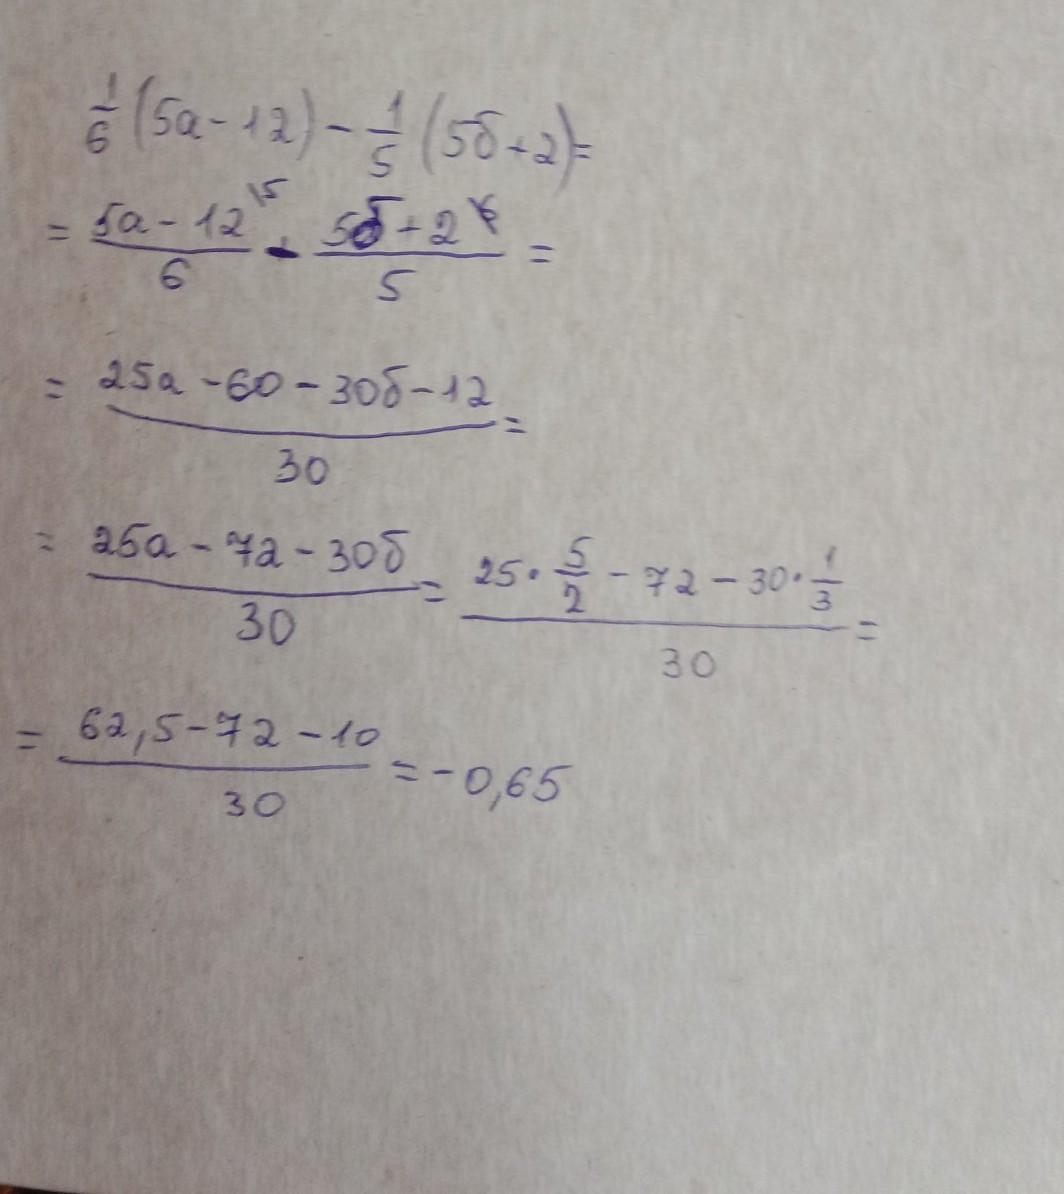 1/6 (5a - 12) - 1/5 (5б + 2) =
= 5a - 12 \5 / 6 - 5б + 2 \6 / 5 =
= 25a - 60 - 30б - 12 / 30 =
= 25a - 72 - 30б / 30 = 25 · 5/2 - 72 - 30 · 1/3 / 30 =
= 62,5 - 72 - 10 / 30 = -0,65